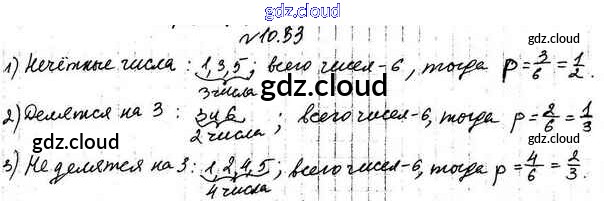 gdz.cloud
№10.33
gdz.cloud
1) Нечётные числа : 1,3,5 ; всего чисел-6, тогда p=3/6=1/2.
3 числа
gdz.cloud
2) Делятся на 3 : 3 и 6 ; всего чисел-6, тогда p=2/6=1/3
2 числа
gdz.cloud
gdz.cloud
3) Не делятся на 3: 1,2,4,5 ; всего чисел-6, тогда p=4/6=2/3.
4 числа
gdz.cloud